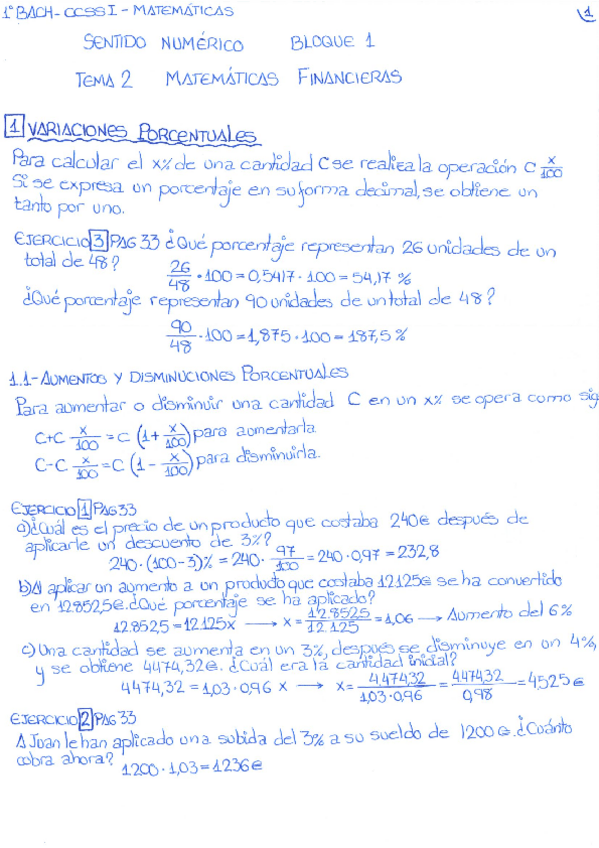 1º BACH - CCSS I - MATEMÁTICAS 1
SENTIDO NUMÉRICO BLOQUE 1
TEMA 2 MATEMÁTICAS FINANCIERAS
1 VARIACIONES PORCENTUALES
Para calcular el x% de una cantidad C se realiza la operación C x/100
Si se expresa un porcentaje en su forma decimal, se obtiene un
tanto por uno.
EJERCICIO 3 PAG 33 ¿Qué porcentaje representan 26 unidades de un
total de 48?
26/48 · 100 = 0,5417 · 100 = 54,17 %
¿Qué porcentaje representan 90 unidades de un total de 48?
90/48 · 100 = 1,875 · 100 = 187,5 %
1.1 - AUMENTOS Y DISMINUCIONES PORCENTUALES
Para aumentar o disminuir una cantidad C en un x% se opera como sig
C+C x/100 = C (1 + x/100) para aumentarla
C-C x/100 = C (1 - x/100) para disminuirla.
EJERCICIO 1 PAG 33
a) ¿Cuál es el precio de un producto que costaba 240€ después de
aplicarle un descuento de 3%?
240 · (100-3)% = 240 · 97/100 = 240 · 0,97 = 232,8
b) Al aplicar un aumento a un producto que costaba 12125€ se ha convertido
en 12852,5€. ¿Qué porcentaje se ha aplicado?
12.852,5 = 12.125x → x = 12.852,5/12.125 = 1,06 → Aumento del 6%
c) Una cantidad se aumenta en un 3%, después se disminuye en un 4%,
y se obtiene 4474,32€. ¿Cuál era la cantidad inicial?
4474,32 = 1,03 · 0,96 x → x = 4.474,32/1,03 · 0,96 = 4.474,32/0,98 = 4525€
EJERCICIO 2 PAG 33
A Juan le han aplicado una subida del 3% a su sueldo de 1200€. ¿Cuánto
cobra ahora?
1200 · 1,03 = 1236€